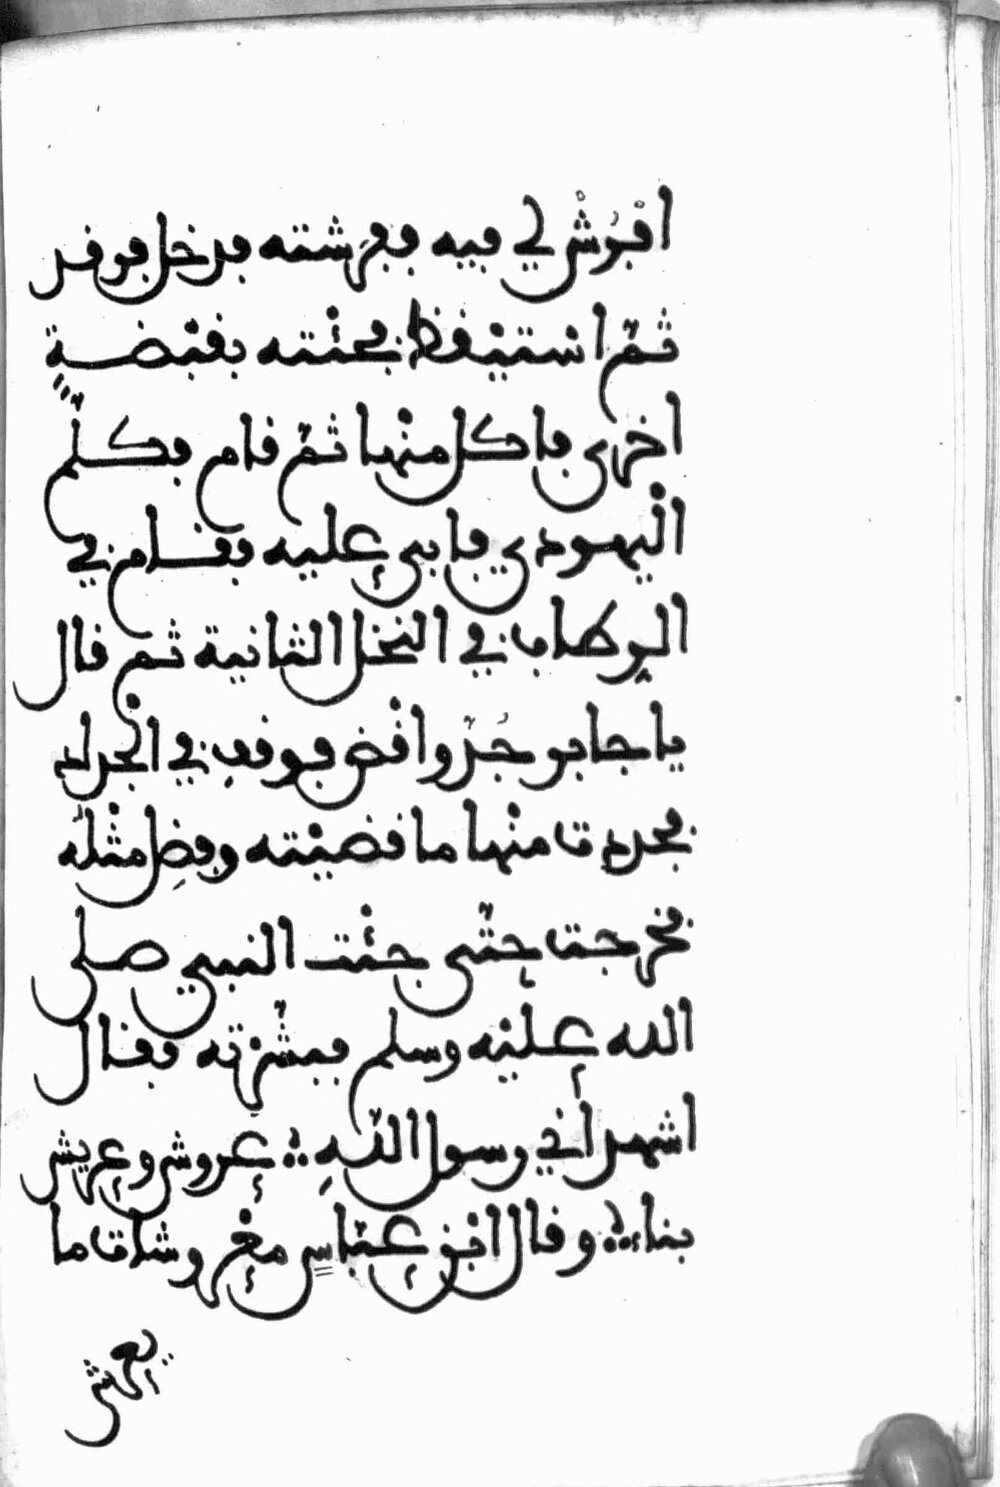 افْرُشْ لي فيه ففرشته فدخل فرقد
ثمّ اسْتيْقظ فجئْته بقبْضةٍ
اخرى فاكل منْها ثمّ قام فكلّم
الْيهودي فابى عليه فقام في
الرطاب في النخل الثانية ثم قال
يا جابر جُزّ واقْض فوقف في الْجداد
فجددت منْها ما قضيْته وفضِل مثْلهُ
فخرجت حتّى جئْت النبي صلى
الله عليْه وسلم فبشّرْته فقال
اشهد أني رسول اللّهِ ∴ عروش وعريش
بناء ∴ وقال ابْن عبّاسٍ معْروشات ما
يعرش